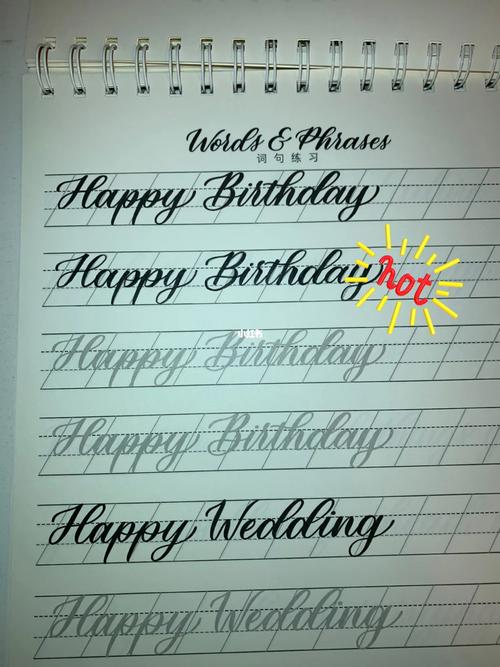 Words & Phrases
词句练习
Happy Birthday
Happy Birthday
hot
小红书
Happy Birthday
Happy Birthday
Happy Wedding
Happy Wedding